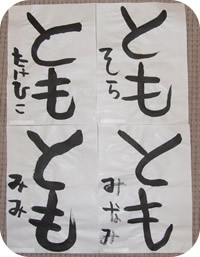 とも
そら
とも
たけひこ
とも
みなみ
とも
みみ